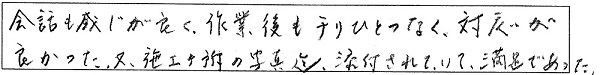 会話も感じが良く、作業後もチリひとつなく、対応が
良かった。又、施工ヶ所の写真迄、添付されていて、満足であった。